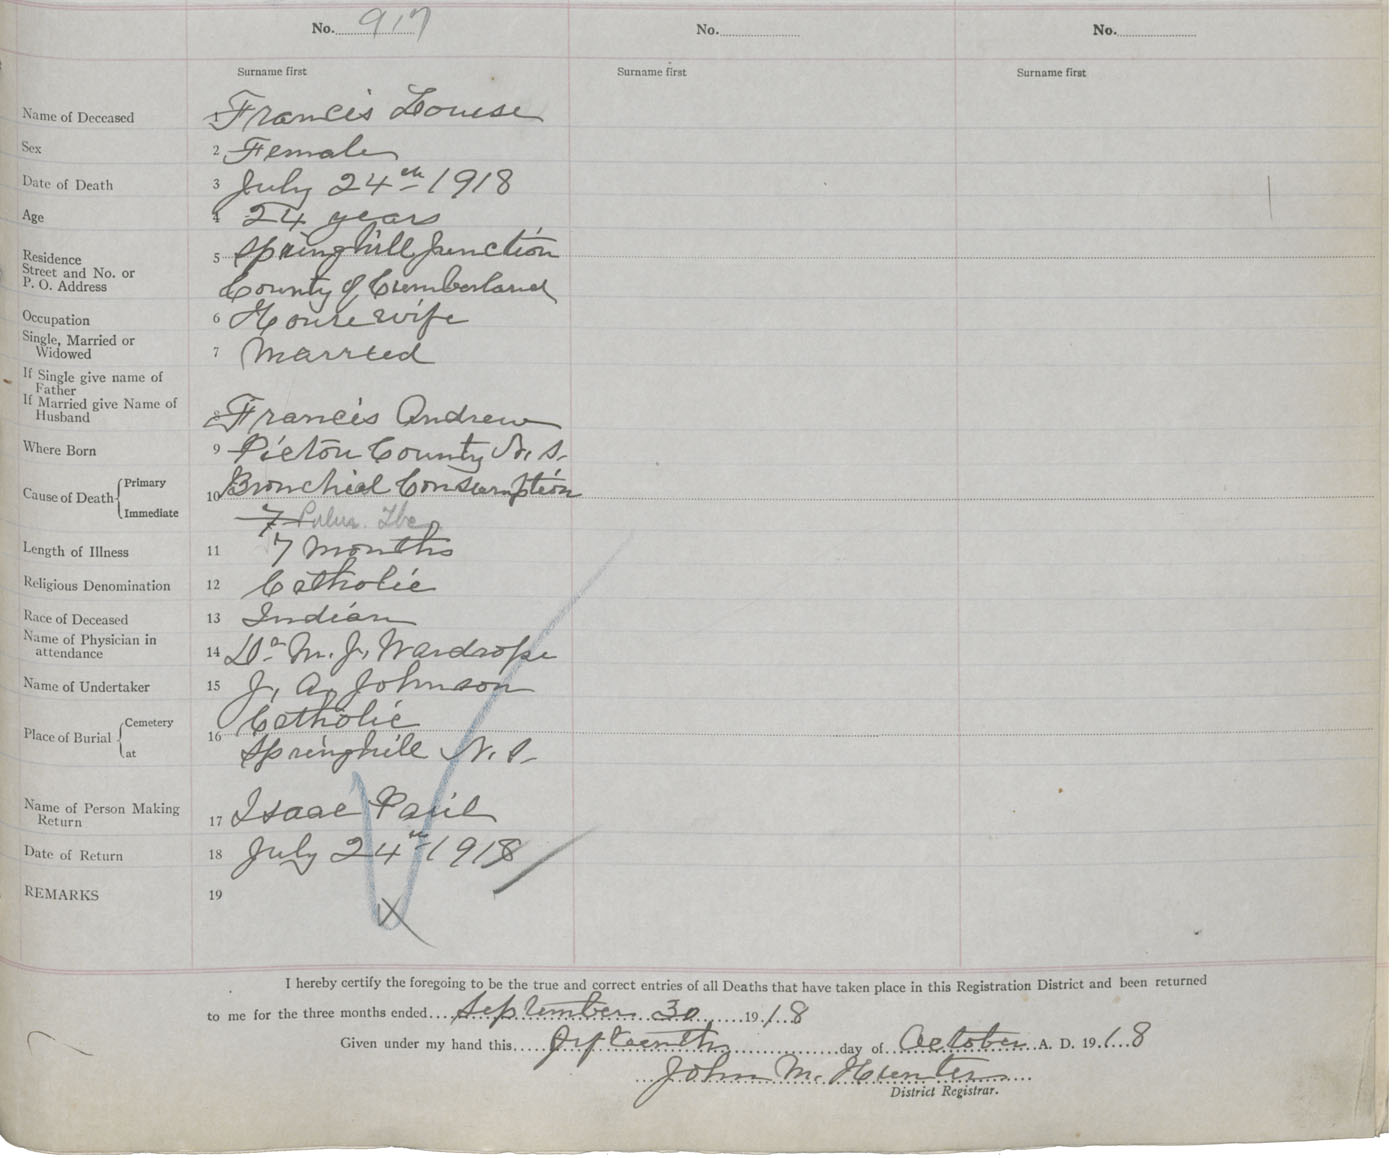 No. 917 No. No.
Surname first Surname first Surname first
Name of Deceased 1 Francis Louise
Sex 2 Female
Date of Death 3 July 24th 1918
Age 4 24 years
Residence
Street and No. or
P. O. Address 5 Springhill Junction
County of Cumberland
Occupation 6 House wife
Single, Married or
Widowed 7 Married
If Single give name of
Father
If Married give Name of
Husband 8 Francis Andrew
Where Born 9 Pictou County N. S.
Cause of Death Primary 10 Bronchial Consumption
Immediate 7 Pulm. Tbc
Length of Illness 11 7 months
Religious Denomination 12 Catholic
Race of Deceased 13 Indian
Name of Physician in
attendance 14 Dr M. J. Wardrope
Name of Undertaker 15 J. A. Johnson
Place of Burial Cemetery 16 Catholic
at Springhill N. S.
Name of Person Making
Return 17 Isaac Paul
Date of Return 18 July 24th 1918
REMARKS 19
X
I hereby certify the foregoing to be the true and correct entries of all Deaths that have taken place in this Registration District and been returned
to me for the three months ended September 30 1918
Given under my hand this fifteenth day of October A. D. 1918
John M. Hunter
District Registrar.